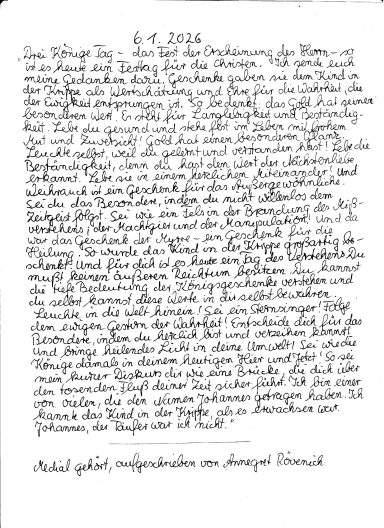 6.1.2026
"Drei Könige Tag – das Fest der Erscheinung des Herrn – so
ist es heute ein Festtag für die Christen. Ich sende euch
meine Gedanken dazu. Geschenke gaben sie dem Kind in
der Krippe als Wertschätzung und Ehre für die Wahrheit, die
der Ewigkeit entsprungen ist. So bedenkt: das Gold hat seinen
besonderen Wert. Es steht für Langlebigkeit und Beständig-
keit. Lebe du gesund und stehe fest im Leben mit frohem
Mut und Zuversicht! Gold hat einen besonderen Glanz.
Leuchte selbst, weil du gelernt und verstanden hast! Lebe die
Beständigkeit, denn du hast den Wert der Nächstenliebe
erkannt. Lebe sie in einem herzlichen Miteinander! Und
Weihrauch ist ein Geschenk für das Außergewöhnliche.
Sei du das Besondere, indem du nicht willenlos dem
Zeitgeist folgst. Sei wie ein Fels in der Brandung des Miß-
verstehens, der Machtgier und der Manipulation! Und da
war das Geschenk der Myrre – ein Geschenk für die
Heilung. So wurde das Kind in der Krippe großartig be-
schenkt. Und für dich ist es heute ein Tag des Verstehens. Du
mußt keinen äußeren Reichtum besitzen. Du kannst
die tiefe Bedeutung der Königsgeschenke verstehen und
du selbst kannst diese Werte in dir selbst bewahren.
Leuchte in die Welt hinein! Sei ein Sternsinger! Folge
dem ewigen Gestirn der Wahrheit! Entscheide dich für das
Besondere, indem du herzlich bist und verzeihen kannst.
Und bringe heilendes Licht in deine Umwelt! Sei wie die
Könige damals in deinem heutigen Hier und Jetzt! So sei
mein kurzer Diskurs dir wie eine Brücke, die dich über
den tosenden Fluß deiner Zeit sicher führt. Ich bin einer
von vielen, die den Namen Johannes getragen haben. Ich
kannte das Kind in der Krippe, als es erwachsen war.
Johannes, der Täufer war ich nicht."
Medial gehört, aufgeschrieben von Annegret Rövenich